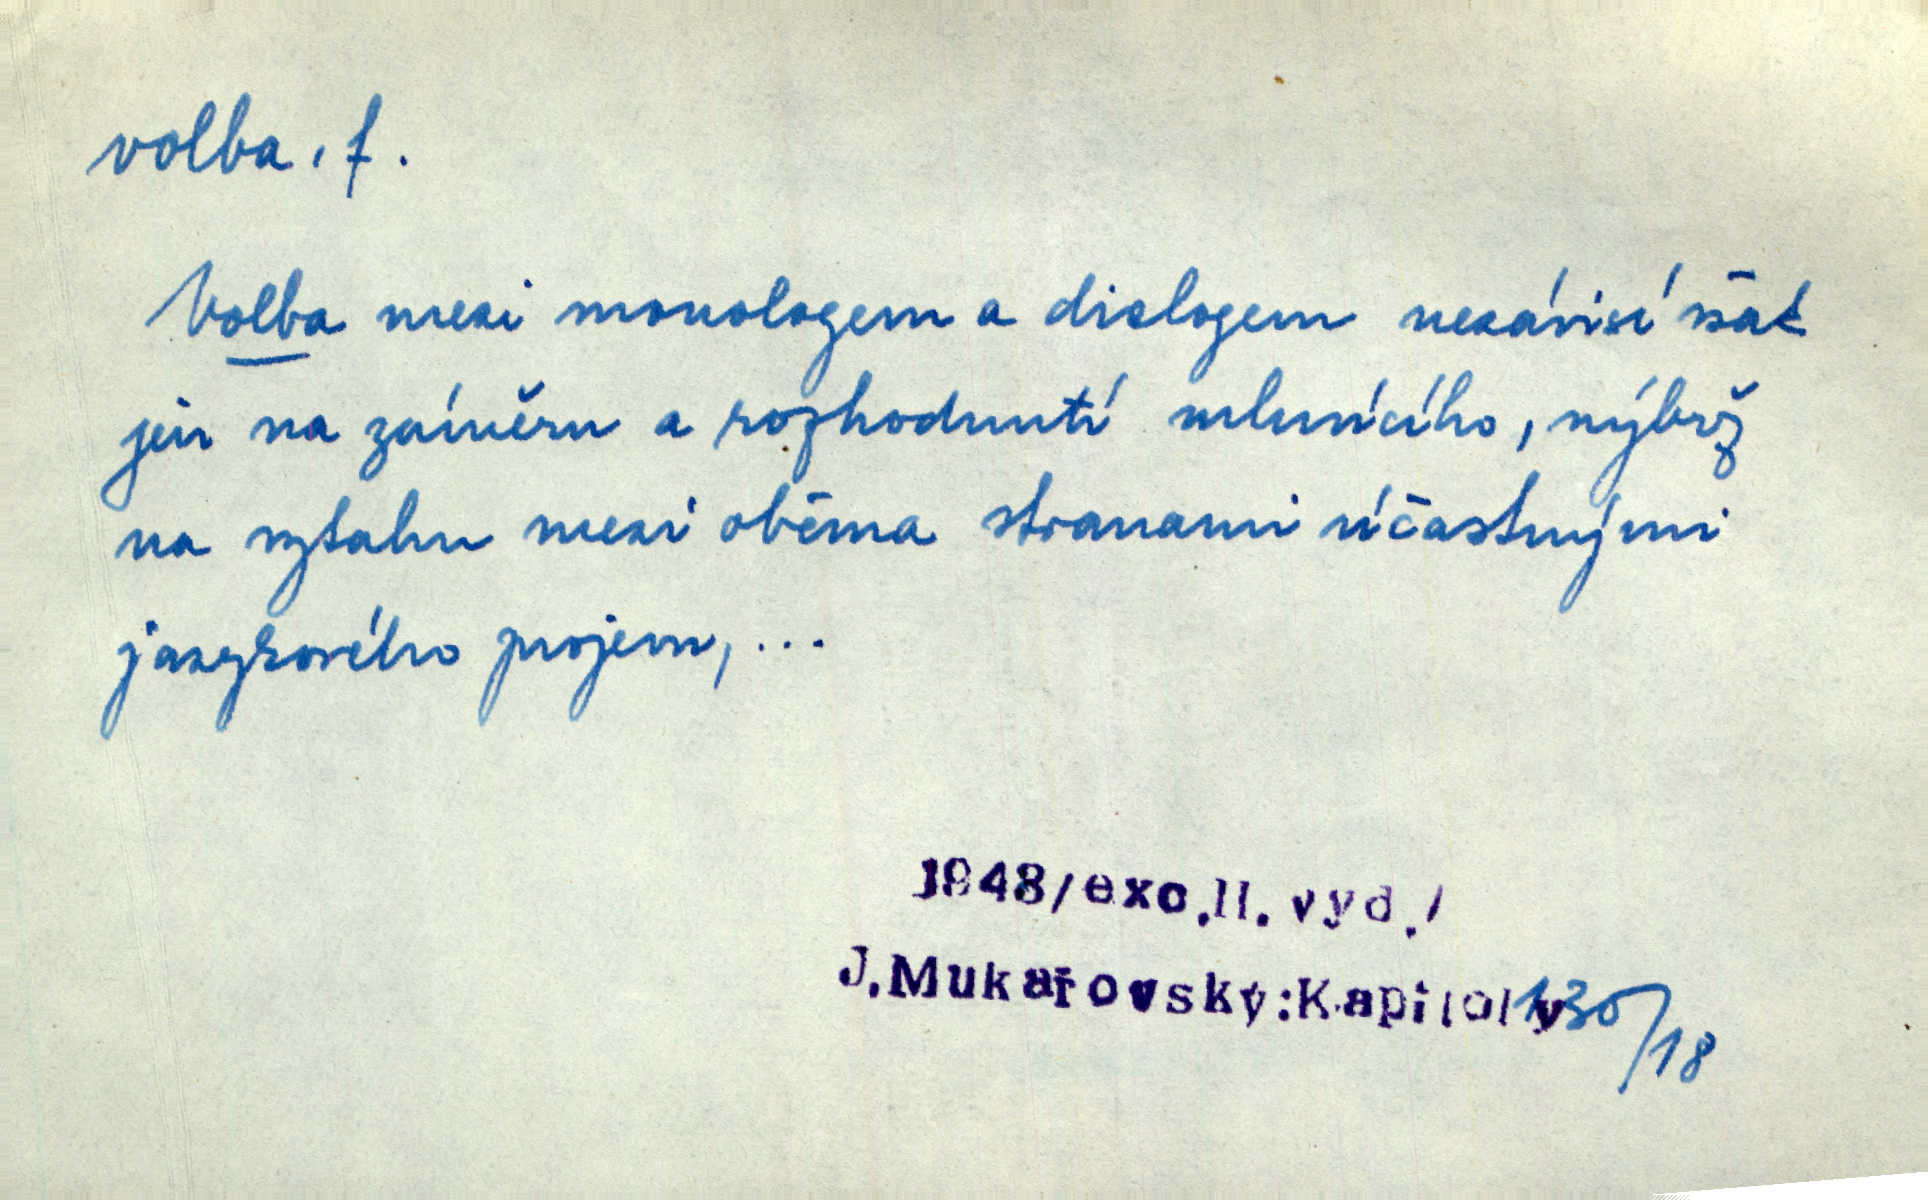 volba, f.
Volba mezi monologem a dialogem nezávisí však
jen na záměru a rozhodnutí mluvícího, nýbrž
na vztahu mezi oběma stranami účastnými
jazykového projevu, ...
1948/exc.II.vyd./
J.Mukařovský:Kapitoly 130/18